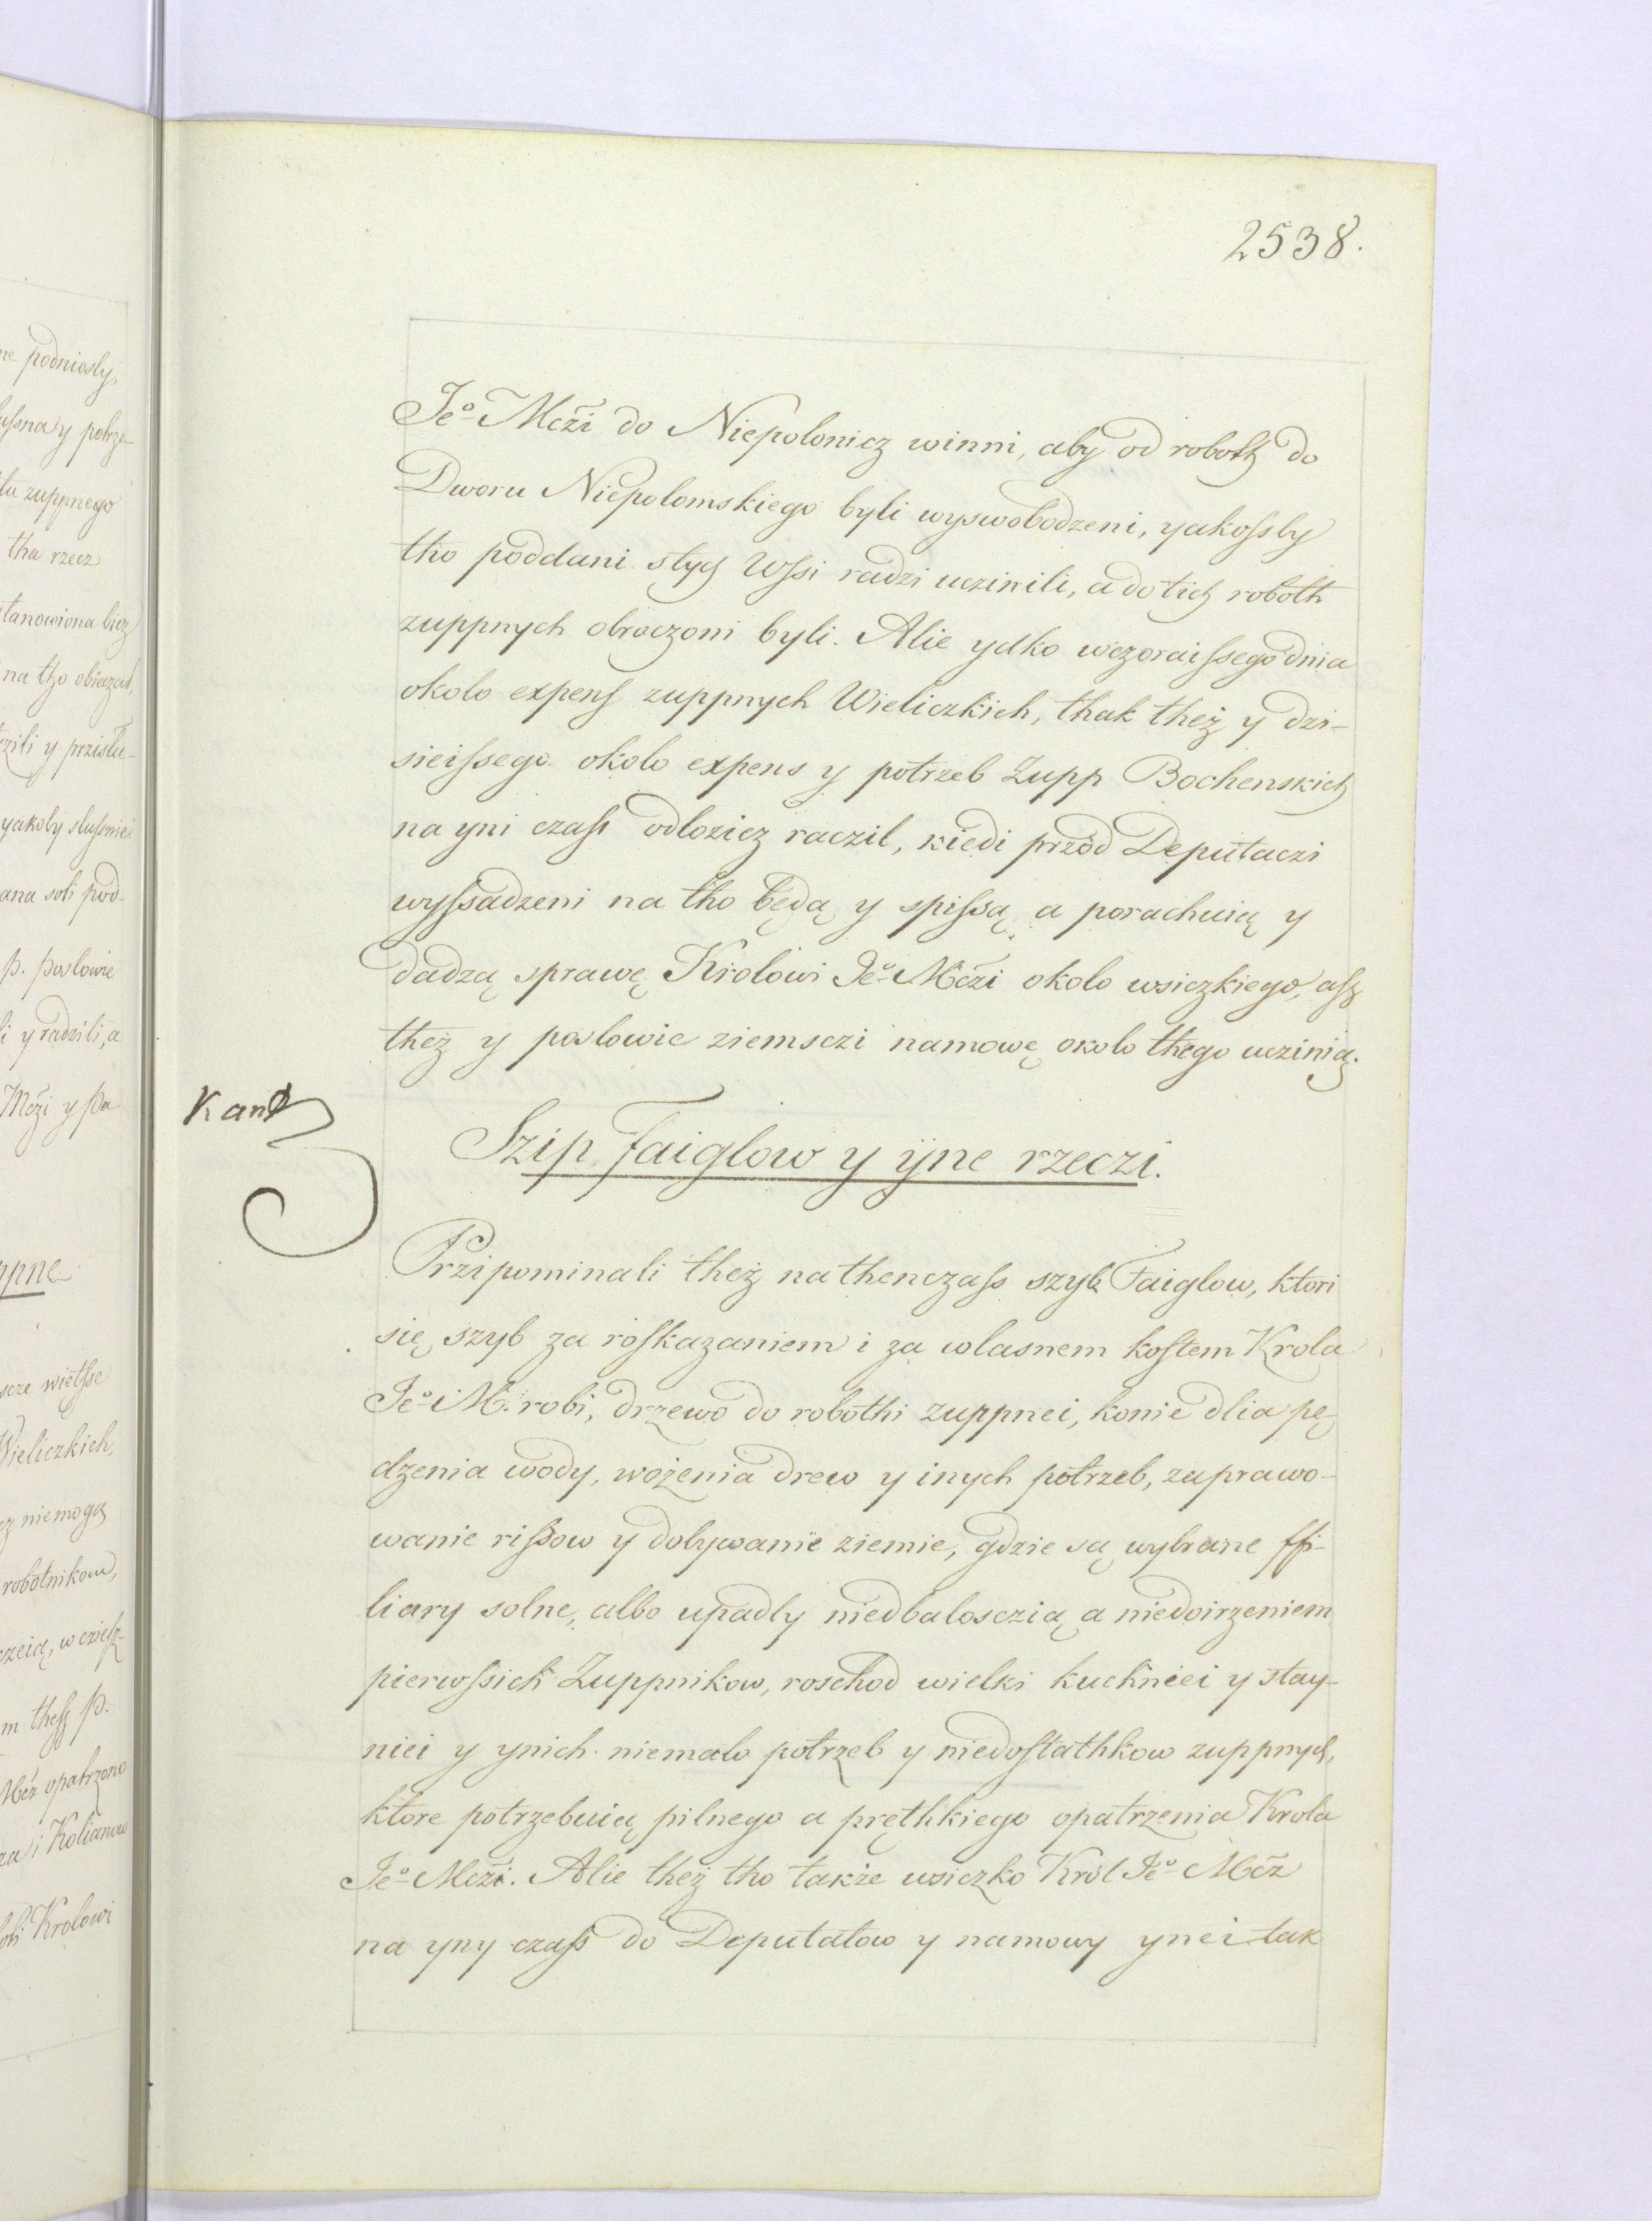 2538.
Jeº Mczi do Niepolonicz winni, aby od roboth do
Dworu Niepolomskiego byli wyswobodzeni, yakossby
tho poddani stych Wssi radzi uczinili, a do tich roboth
zuppnych obroczoni byli. Alie yako wczoraissego dnia
okolo expens zuppnych Wieliczkich, thak theż y dzi-
sieissego okolo expens y potrzeb Zupp Bochenskich
na yni czass odlozicz raczil, kiedi przód Deputaczi
wyssadzeni na tho będą y spissą a porachuią y
dadzą sprawę Królowi Jeº Mczi okolo wsiczkiego, asz
theż y poslowie ziemsczi namowę okolo thego uczinią.
Kant
Szip Faiglow y ÿne rzeczi.
Przipominali theż na thenczass szyb Faiglow, ktori
się szyb za rosskazaniem i za wlasnem kostem Krola
Jeº M. robi, drzewo do robothi zuppnei, konie dlia pę-
dzenia wody, wożenia drew y inych potrzeb, zaprawo-
wanie rissow y dobywanie ziemie, gdzie są wybrane ffi-
liary solne, albo upadly niedbalosczią a niedoirzeniem
pierwssich Zuppnikow, roschod wielki kuchniei y stay-
niei y ynich niemalo potrzeb y niedostathkow zuppnych,
ktore potrzebuią pilnego a pręthkiego opatrzenia Krola
Jeº Mczi. Alie theż tho także wsiczko Król Jeº Mcz
na yny czass do Deputatow y namowy ynei tak
ne podniosly,
tu zuppnego
tha rzecz
na tho obiązal,
yakoby slussnie
p. poslowie
li y radzili, a
Mczi y pa
ppne
scze wietsse
Wieliczkich,
cz niemogą
robotnikow,
m thesz p.
Mcz opatrzono
za i Kolianow
Krolowi